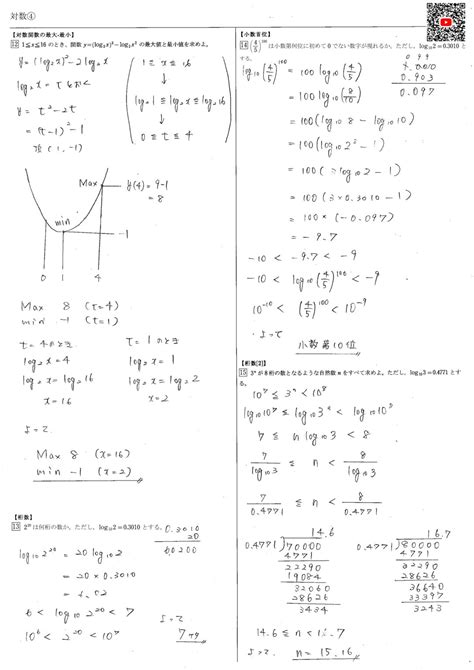 対数④
【対数関数の最大・最小】
12 1≦x≦16 のとき、関数 y=(log₂x)²−log₂x² の最大値と最小値を求めよ。
y = (log₂x)² − 2log₂x
log₂x = t とおく
y = t² − 2t
= (t−1)² − 1
頂(1, −1)
1 ≦ x ≦ 16
↓
log₂1 ≦ log₂x ≦ log₂16
↓
0 ≦ t ≦ 4
Max
y(4) = 9−1
= 8
min
−1
0 1 4
Max 8 (t=4)
min −1 (t=1)
t=4のとき
log₂x = 4
log₂x = log₂16
x = 16
t=1のとき
log₂x = 1
log₂x = log₂2
x = 2
よって
Max 8 (x=16)
min −1 (x=2)
【桁数】
13 2²⁰ は何桁の数か。ただし、log₁₀2=0.3010 とする。
0.3010
20
60200
log₁₀2²⁰ = 20log₁₀2
= 20×0.3010
= 6.02
6 < log₁₀2²⁰ < 7
10⁶ < 2²⁰ < 10⁷
よって
7ケタ
【小数首位】
14 (4/5)¹⁰⁰ は小数第何位に初めて0でない数字が現れるか。ただし、log₁₀2=0.3010 とする。
0.903
0.097
log₁₀(4/5)¹⁰⁰ = 100log₁₀(4/5)
= 100log₁₀(8/10)
= 100(log₁₀8 − log₁₀10)
= 100(log₁₀2³ − 1)
= 100(3log₁₀2 − 1)
= 100(3×0.3010 − 1)
= 100×(−0.097)
= −9.7
−10 < −9.7 < −9
−10 < log₁₀(4/5)¹⁰⁰ < −9
10⁻¹⁰ < (4/5)¹⁰⁰ < 10⁻⁹
よって
小数第10位
【桁数[2]】
15 3ⁿ が8桁の数となるような自然数 n をすべて求めよ。ただし、log₁₀3=0.4771 とする。
10⁷ ≦ 3ⁿ < 10⁸
log₁₀10⁷ ≦ log₁₀3ⁿ < log₁₀10⁸
7 ≦ n log₁₀3 < 8
7/log₁₀3 ≦ n < 8/log₁₀3
7/0.4771 ≦ n < 8/0.4771
14.6
0.4771)70000
4771
22290
19084
32060
28626
3434
16.7
0.4771)80000
4771
32290
28626
36640
33397
3243
14.6 ≦ n < 16.7
よって
n = 15, 16